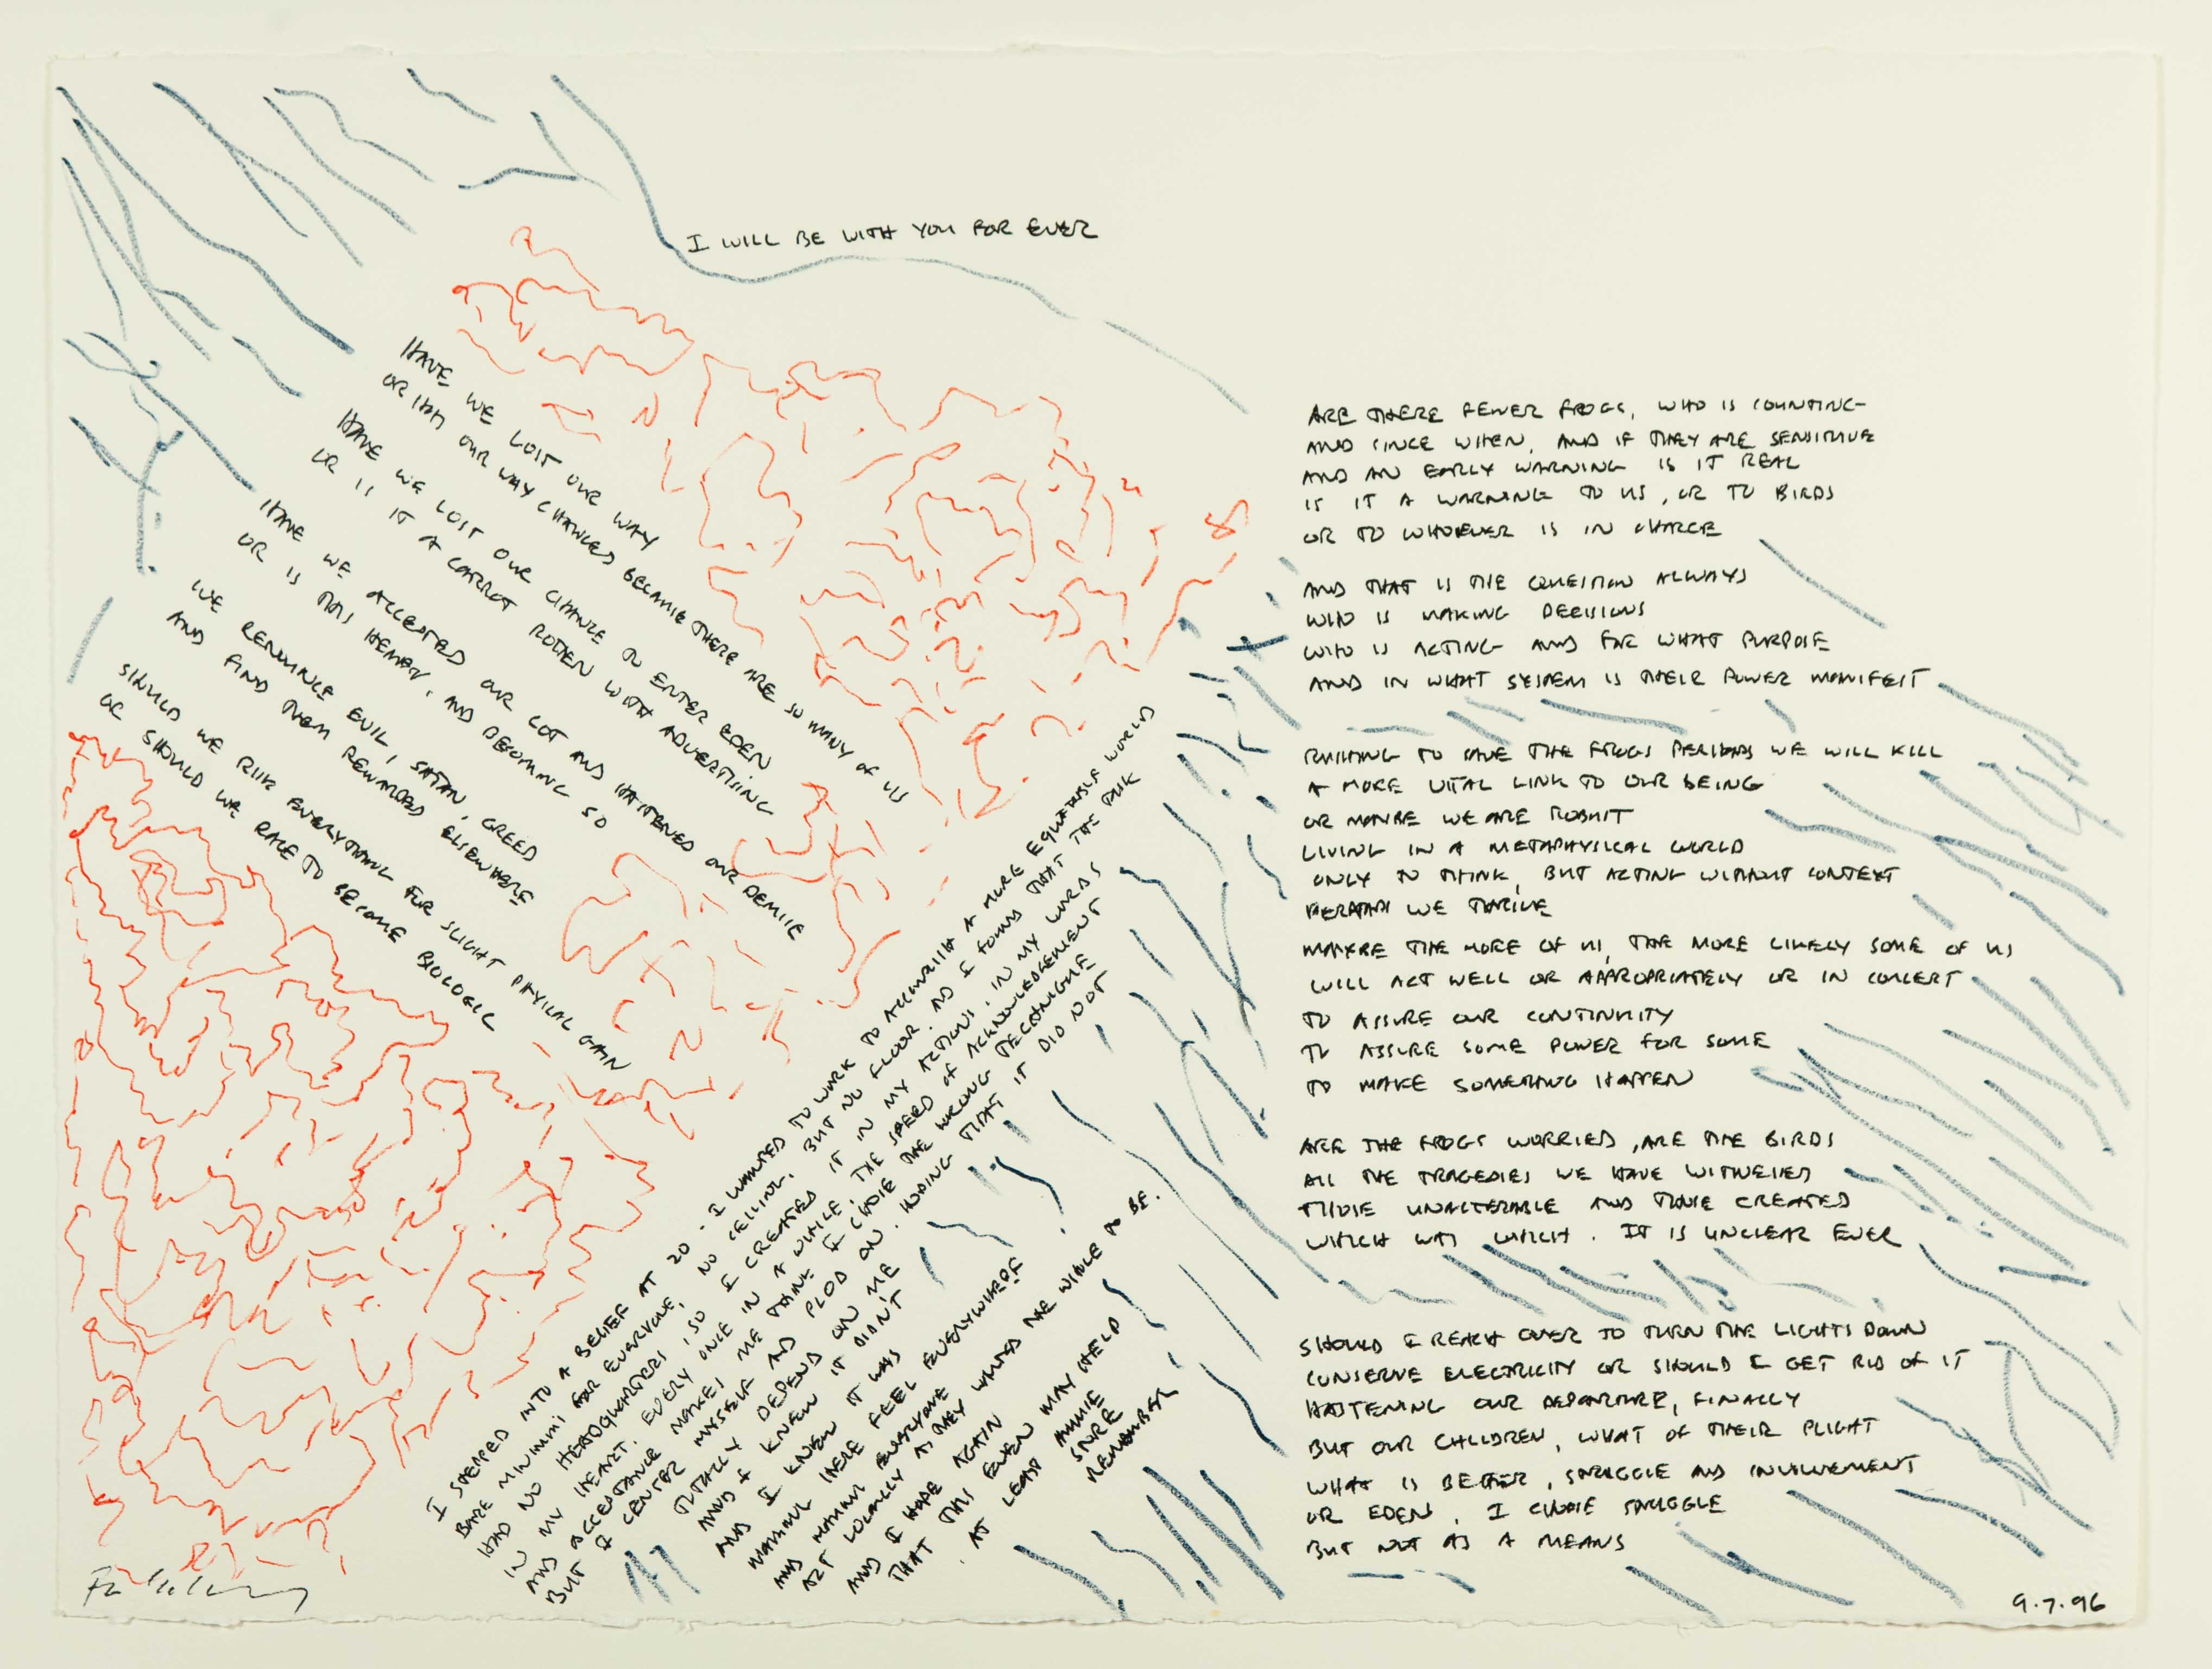 I WILL BE WITH YOU FOR EVER
HAVE WE LOST OUR WAY
OR HAS OUR WAY CHANGED BECAUSE THERE ARE SO MANY OF US
HAVE WE LOST OUR CHANCE TO ENTER EDEN
OR IS IT A CARROT ROTTEN WITH ADVERTISING
HAVE WE ACCEPTED OUR LOT AND HASTENED OUR DEMISE
OR IS THIS HEAVEN, AND BECOMING SO
WE RENOUNCE EVIL, SATAN, GREED
AND FIND THEM REWARDED ELSEWHERE
SHOULD WE RISK EVERYTHING FOR SLIGHT PHYSICAL GAIN
OR SHOULD WE RACE TO BECOME BIOLOGIC
I STEPPED INTO A BELIEF AT 20. I WANTED TO WORK TO ACCOMPLISH A MORE EQUITABLE WORLD
BARE MINIMUM FOR EVERYONE, NO CEILING, BUT NO FLOOR. AS I FOUND THAT THE TASK
HAD NO HEADQUARTERS, SO I CREATED IT IN MY ACTIONS, IN MY WORDS
IN MY HEART. EVERY ONCE IN A WHILE, THE SPEED OF ACKNOWLEDGEMENT
AND ACCEPTANCE MAKES ME THINK I CHOSE THE WRONG TECHNIQUE
BUT I CENTER MYSELF AND PLOD ON. HOPING THAT IT DID NOT
TOTALLY DEPEND ON ME
AND I KNEW IT DIDN'T
AND I KNEW IT WAS
MAKING HERE FEEL EVERYWHERE
AND MAKING EVERYONE
ACT LOCALLY AS THEY WANTED THE WHOLE TO BE.
AND I HOPE AGAIN
THAT THIS EVEN MAY HELP
. AT LEAST AMUSE
SPORE
REMEMBER
ARE THERE FEWER FROGS, WHO IS COUNTING
AND SINCE WHEN, AND IF THEY ARE SENSITIVE
AND AN EARLY WARNING IS IT REAL
IS IT A WARNING TO US, OR TO BIRDS
OR TO WHOEVER IS IN CHARGE
AND THAT IS THE QUESTION ALWAYS
WHO IS MAKING DECISIONS
WHO IS ACTING AND FOR WHAT PURPOSE
AND IN WHAT SYSTEM IS THEIR POWER MANIFEST
RUSHING TO SAVE THE FROGS PERHAPS WE WILL KILL
A MORE VITAL LINK TO OUR BEING
OR MAYBE WE ARE ROBUST
LIVING IN A METAPHYSICAL WORLD
ONLY TO THINK, BUT ACTING WITHOUT CONTEXT
PERHAPS WE THRIVE
MAYBE THE MORE OF US, THE MORE LIKELY SOME OF US
WILL ACT WELL OR APPROPRIATELY OR IN CONCERT
TO ASSURE OUR CONTINUITY
TO ASSURE SOME POWER FOR SOME
TO MAKE SOMETHING HAPPEN
ARE THE FROGS WORRIED, ARE THE BIRDS
ALL THE TRAGEDIES WE HAVE WITNESSED
THOSE UNALTERABLE AND THOSE CREATED
WHICH WAS WHICH. IT IS UNCLEAR EVER
SHOULD I REACH OVER TO TURN THE LIGHTS DOWN
CONSERVE ELECTRICITY OR SHOULD I GET RID OF IT
HASTENING OUR DEPARTURE, FINALLY
BUT OUR CHILDREN, WHAT OF THEIR PLIGHT
WHAT IS BETTER, STRUGGLE AND INVOLVEMENT
OR EDEN, I CHOSE STRUGGLE
BUT NOT AS A MEANS
9.7.96